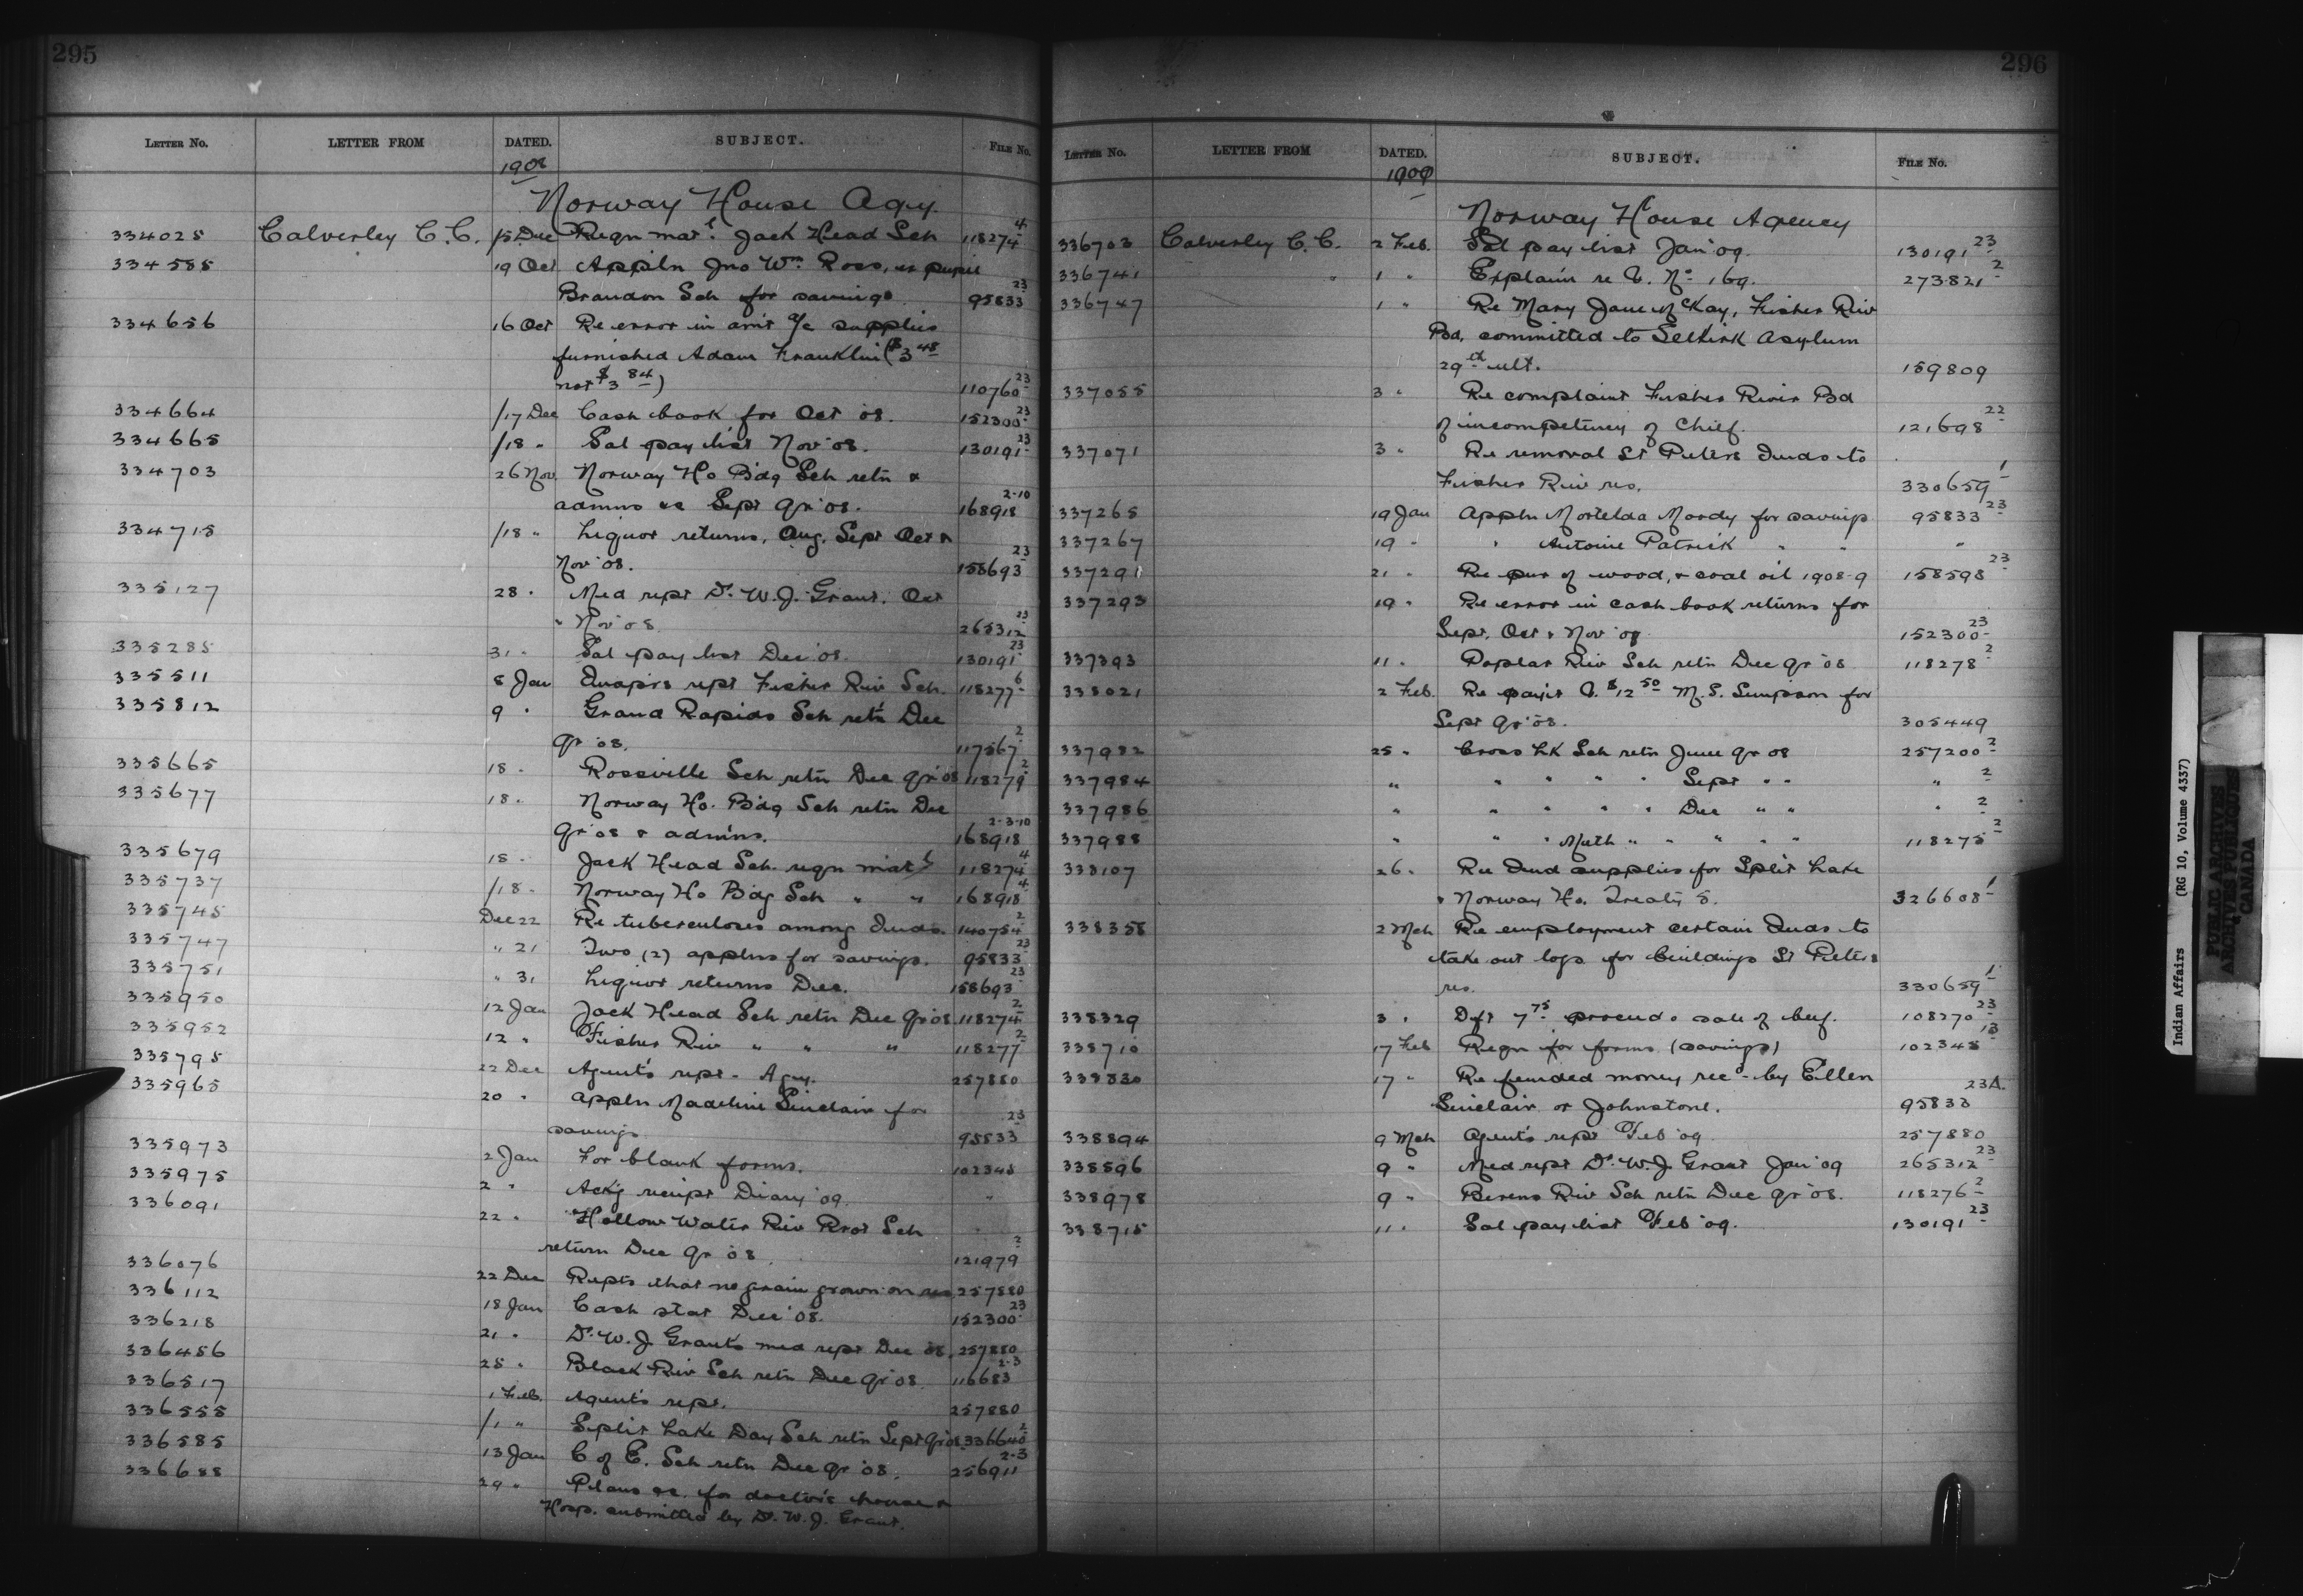 295
LETTER NO. LETTER FROM DATED. SUBJECT. FILE NO.
1908
Norway House Agcy.
334025 Calverley C.C. /15 Dec Reqn mat'l. Jack Head Sch 118274-4
334585 19 Oct Appln Jno Wm. Ross, ex pupil
Brandon Sch for savings 95833-23
334656 16 Oct Re error in am't a/c supplies
furnished Adam Franklin ($3 48
not $3 84) 110760-23
334664 /17 Dec Cash book for Oct '08. 152300-23
334665 /18 " Sal pay list Nov '08. 130191-23
334703 26 Nov. Norway Ho Bdg Sch retn &
admns &c Sept qr '08. 168918 2-10
334715 /18 " Liquor returns, Aug, Sept Oct &
Nov '08. 158693-23
335127 28 " Med rept Dr. W.J. Grant. Oct
" Nov '08. 265312-23
335285 31 " Sal pay list Dec '08. 130191-23
335511 8 Jan Inspr's rept Fisher Riv Sch. 118277-6
335812 9 " Grand Rapids Sch retn Dec
qr '08. 117567-2
335665 18 " Rossville Sch retn Dec qr '08 118279-2
335677 18 " Norway Ho. Bdg Sch retn Dec
qr '08 & admns. 168918 2-3-10
335679 18 " Jack Head Sch. reqn mat'l 118274-4
335737 /18 " Norway Ho Bdg Sch " " 168918-4
335745 Dec 22 Re tuberculosis among Inds. 140754-2
335747 " 21 Two (2) applns for savings. 95833-23
335751 " 31 Liquor returns Dec. 158693-23
335950 12 Jan Jack Head Sch retn Dec qr '08 118274-2
335952 12 " Fisher Riv " " " 118277-2
335795 22 Dec Agent's rept - Agcy. 257880
335965 20 " Appln Madeline Sinclair for
savings 95833-23
335973 2 Jan For blank forms. 102345
335975 2 " Ackg receipt Diary '09. "
336091 22 " Hollow Water Riv Prot Sch
return Dec qr '08. 121979-2
336076 22 Dec Repts that no grain grown on res. 257880
336112 18 Jan Cash stat Dec '08. 152300-23
336218 21 " Dr. W.J. Grant's med rept Dec '08. 257880
336456 25 " Black Riv Sch retn Dec qr '08. 116683 2-3
336517 1 Feb. Agent's rept. 257880
336555 /1 " Split Lake Day Sch retn Sept qr '08 336640-2
336585 13 Jan C of E. Sch retn Dec qr '08. 256911 2-3
336688 29 " Plans &c. for doctor's house &
Hosp. submitted by Dr. W.J. Grant.
296
LETTER NO. LETTER FROM DATED. SUBJECT. FILE NO.
1909
Norway House Agency
336703 Calverley C.C. 2 Feb. Sal pay list Jan '09. 130191-23
336741 1 " Explain re V. No. 169. 273821-2
336747 1 " Re Mary Jane McKay, Fisher Riv
Bd, committed to Selkirk Asylum
29th ult. 159809
337055 3 " Re complaint Fisher River Bd
of incompetency of Chief. 121698-22
337071 3 " Re removal St Peters Inds to
Fisher Riv res. 330659-1
337265 19 Jan Appln Moody for savings 95833-23
337267 19 " " Antoine Patrick " " "
337291 21 " Re pur of wood, & coal oil 1908-9 158598-23
337293 19 " Re error in cash book returns for
Sept, Oct & Nov '08 152300-23
337393 11 " Poplar Riv Sch retn Dec qr '08 118278-2
338021 2 Feb. Re paym't V. $12 50 M.S. Simpson for
Sept qr '08. 305449
337982 25 " Cross Lk Sch retn June qr 08 257200-2
337984 " " " " " Sept " " " 2
337986 " " " " " Dec " " " 2
337988 " " " Meth " " " " " 118275-2
338107 26 " Re Ind supplies for Split Lake
& Norway Ho. Treaty 5. 326608-1
338358 2 Mch Re employment certain Inds to
take out logs for buildings St Peters
res. 330659-1
338329 3 " Dft 7 75 proceeds sale of beef. 108270-23
338710 17 Feb Reqn for forms (savings) 102345-13
338830 17 " Re funded money rec'd by Ellen
Sinclair or Johnstone. 95833 23A.
338894 9 Mch Agent's rept Feb '09. 257880
338896 9 " Med rept Dr. W.J. Grant Jan '09 265312-23
338978 9 " Berens Riv Sch retn Dec qr '08. 118276-2
338715 11 " Sal pay list Feb '09. 130191-23
Indian Affairs (RG 10, Volume 4337)
PUBLIC ARCHIVES
ARCHIVES PUBLIQUES
CANADA